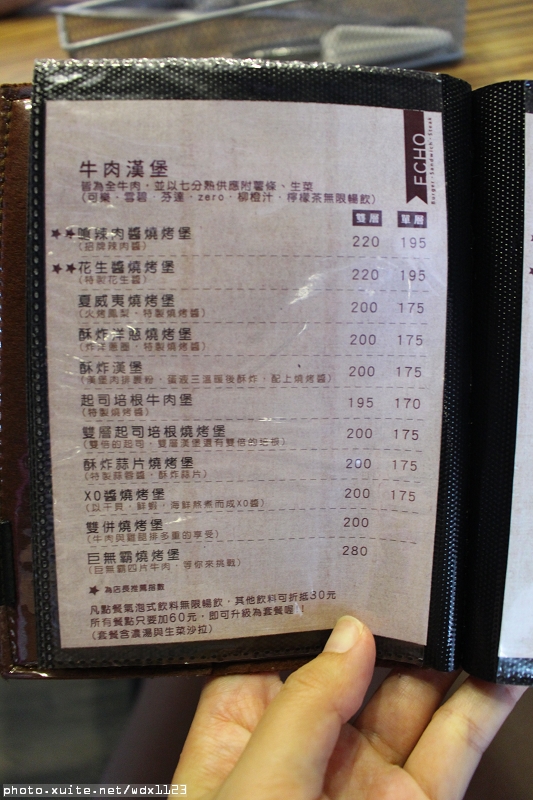 ECHO
Burger.Sandwich.Steak
牛肉漢堡
皆為全牛肉，並以七分熟供應附薯條、生菜
(可樂．雪碧．芬達．zero．柳橙汁．檸檬茶無限暢飲)
雙層 單層
★★嗆辣肉醬燒烤堡 220 195
(招牌辣肉醬)
★★花生醬燒烤堡 220 195
(特製花生醬)
夏威夷燒烤堡 200 175
(火烤鳳梨．特製燒烤醬)
酥炸洋蔥燒烤堡 200 175
(炸洋蔥圈．特製燒烤醬)
酥炸漢堡 200 175
(漢堡肉排裹粉．蛋液三溫暖後酥炸，配上燒烤醬)
起司培根牛肉堡 195 170
(特製燒烤醬)
雙層起司培根燒烤堡 200 175
(雙倍的起司．雙層漢堡還有雙倍的培根)
酥炸蒜片燒烤堡 200 175
(特製蒜蓉醬．酥炸蒜片)
XO醬燒烤堡 200 175
(以干貝．鮮蝦．海鮮熬煮而成XO醬)
雙併燒烤堡 200
(牛肉與雞腿排多重的享受)
巨無霸燒烤堡 280
(巨無霸四片牛肉．等你來挑戰)
★為店長推薦指數
凡點餐氣泡式飲料無限暢飲，其他飲料可折抵30元
所有餐點只要加60元，即可升級為套餐喔！
(套餐含濃湯與生菜沙拉)
photo.xuite.net/wdx1123